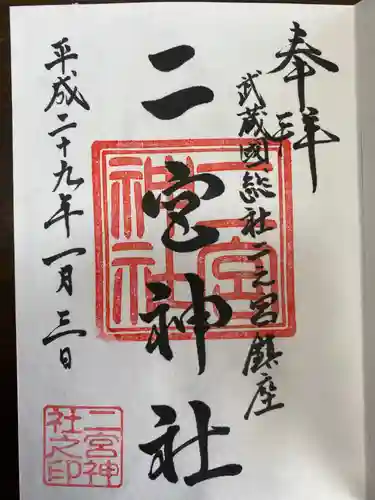 奉拝
武蔵國総社二之宮鎮座
二宮神社
平成二十九年一月三日
二宮
神社
二宮神
社之印